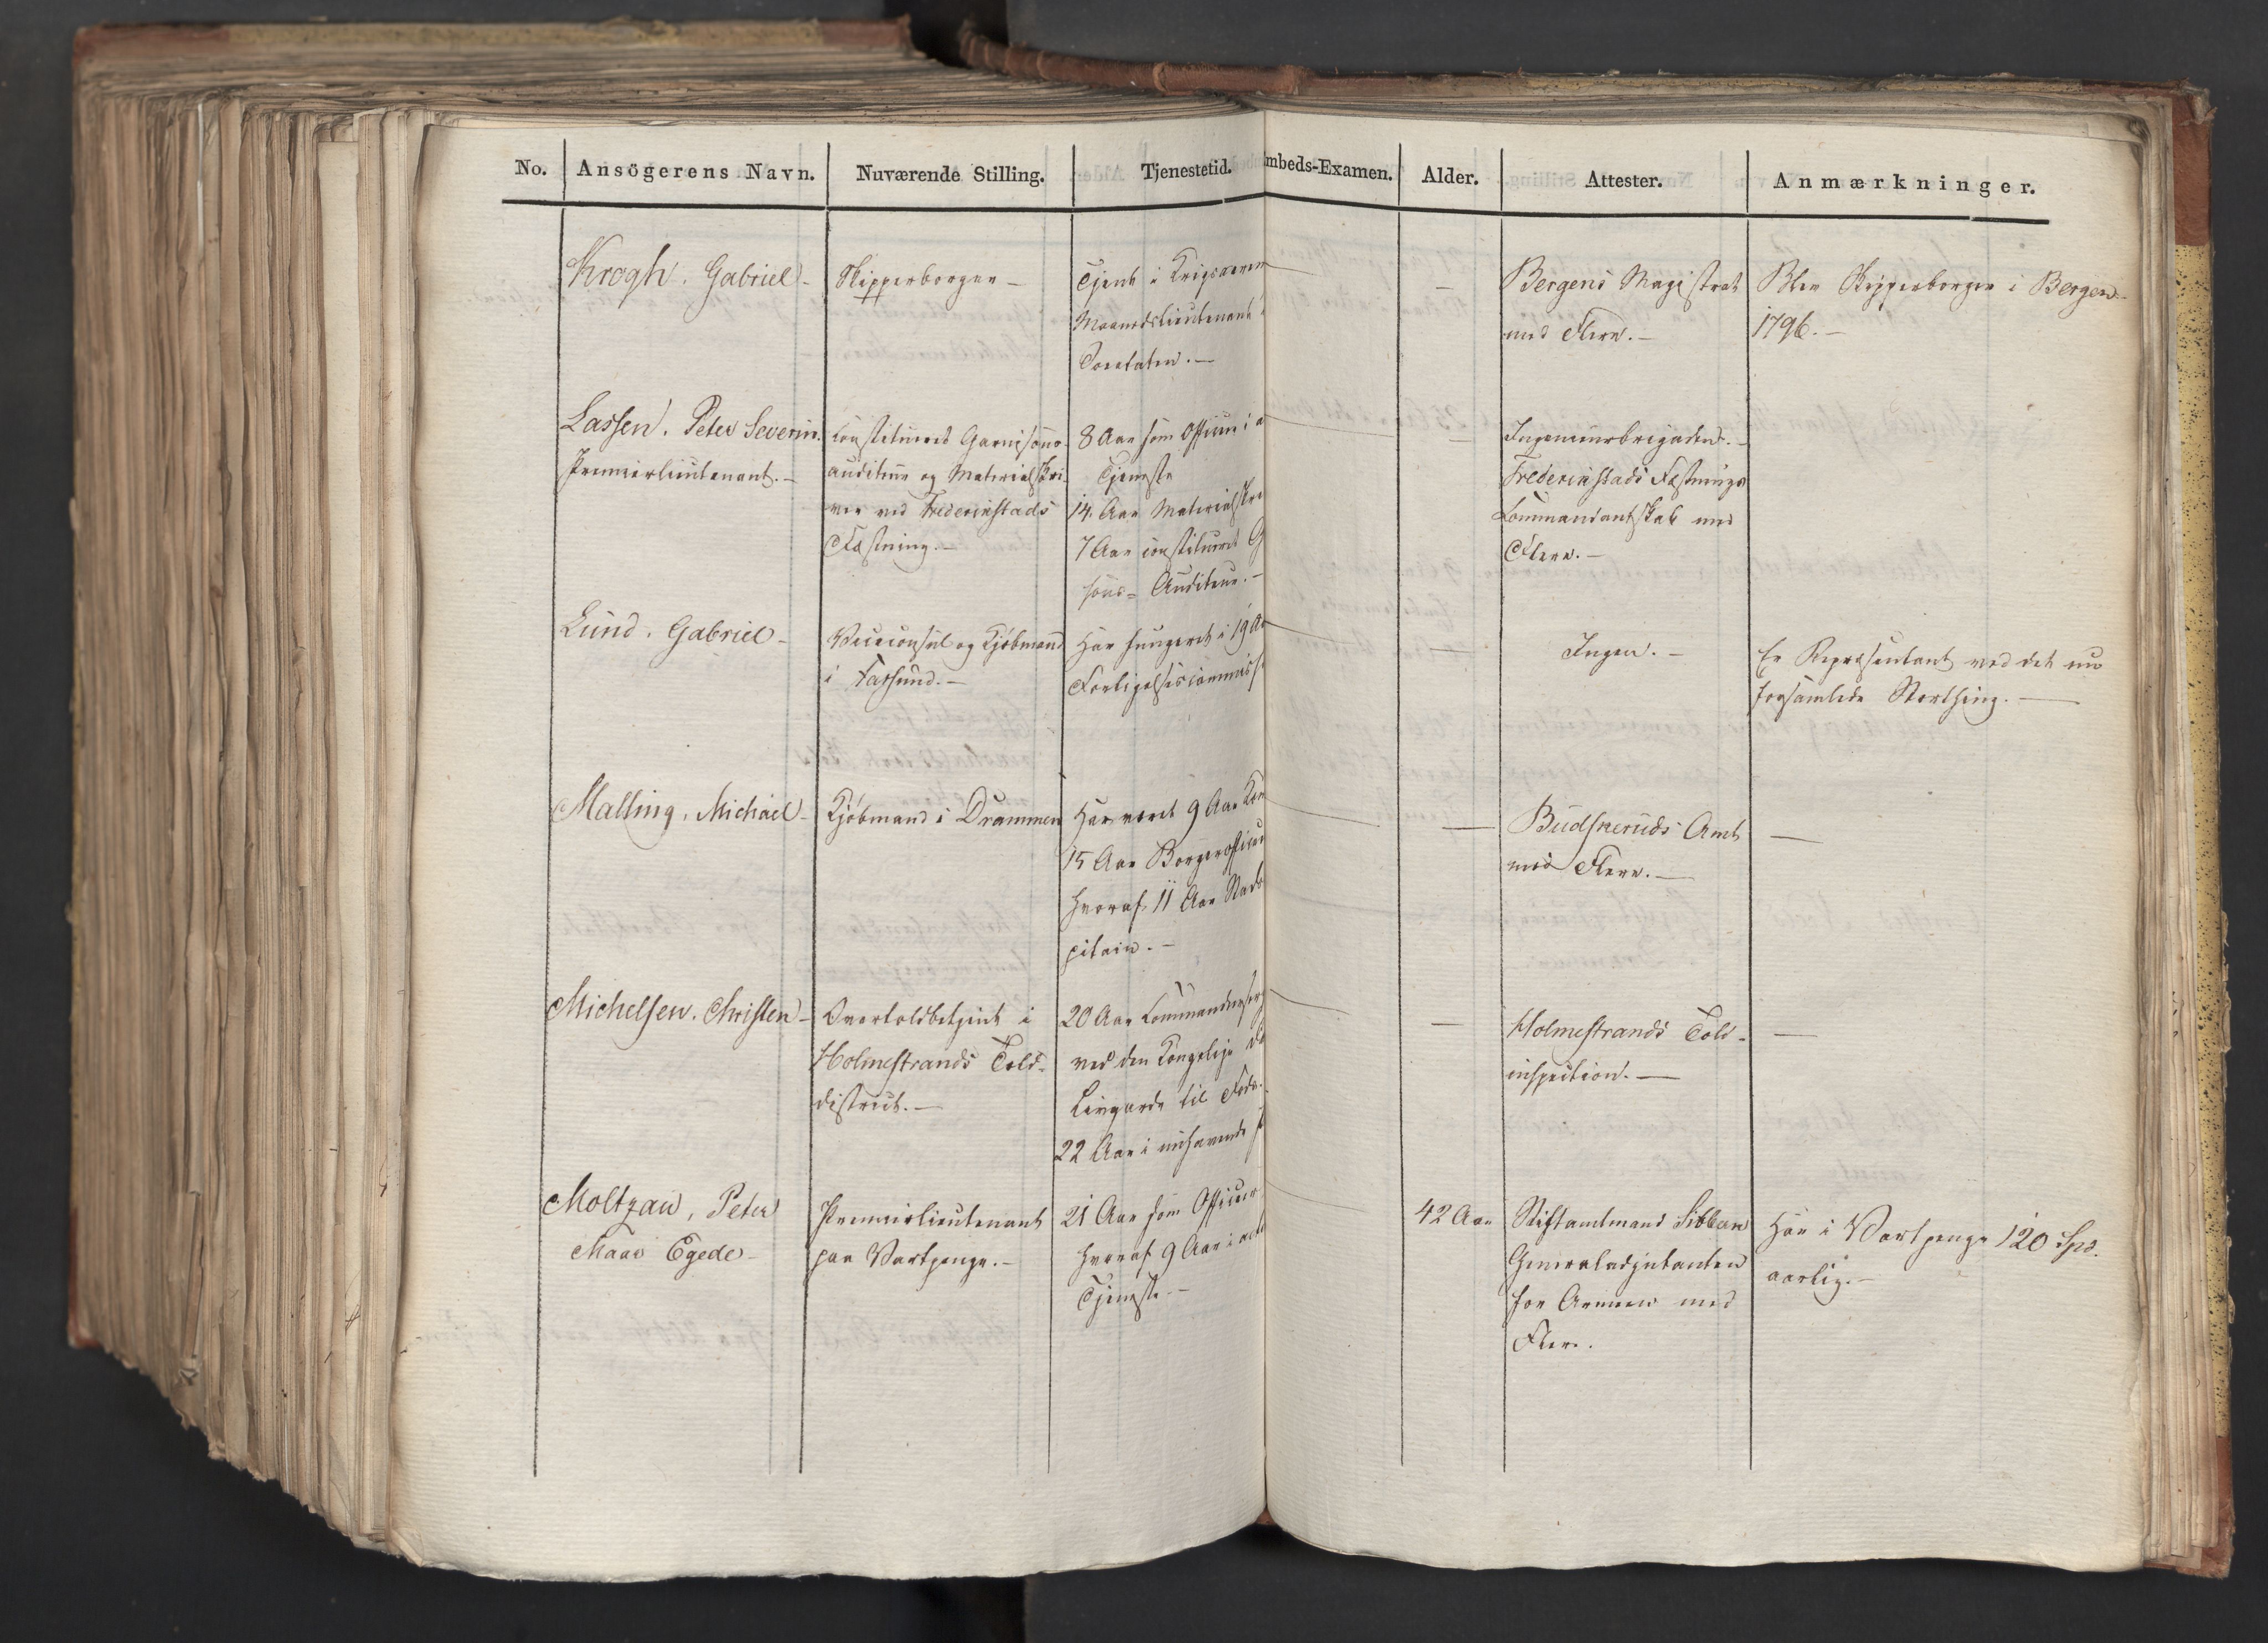 No. Ansögerens Navn. Nuværende Stilling. Tjenestetid. mbeds-Examen. Alder. Attester. Anmærkninger.
Krogh, Gabriel - Skipperborger - Tjent i Krigsaarene — - Bergens Magistrat Blev Skipperborger i Bergen -
Maanedslieutenant med Flere. - 1796. -
Søeetaten. -
Lassen, Peter Severin. constitueret Garnisons- 8 Aar som Officier i a — - Ingenieurbrigaden. -
Premierlieutenant. - auditeur og Materialskri- Tjeneste Frederikstads Fæstnings
ver ved Frederikstads 14 Aar Materialskri Commandantskab med
Fæstning. - 7 Aar constitueret G Flere. -
sons- Auditeur. -
Lund, Gabriel - Viceconsul og Kjøbmand Har fungeret i 19 Aa — — Ingen. - Er Repræsentant ved det nu
i Farsund. - Forligelsescommiss forsamlede Storthing. —
Malling, Michael - Kjøbmand i Drammen Har været 9 Aar — — Budskeruds Amt —
15 Aar Borgerofficier med Flere. —
hvoraf 11 Aar Stads
pitain. -
Michelsen, Christen - Overtoldbetjent i 20 Aar Commandeerserg — — Holmestrands Told- —
Holmestrands Told- ved den Kongelige inspection. —
district. — Livgarde til Fods.
22 Aar i nuhavende
Moltzau, Peter Premierlieutenant 21 Aar som Officier — 42 Aar Stiftamtmand Sibbern Har i Vartpenge 120 Spd.
Maar Egede - paa Vartpenge. - hvoraf 9 Aar i acti Generaladjutanten aarlig. -
Tjeneste. - for Armeen med
Flere.